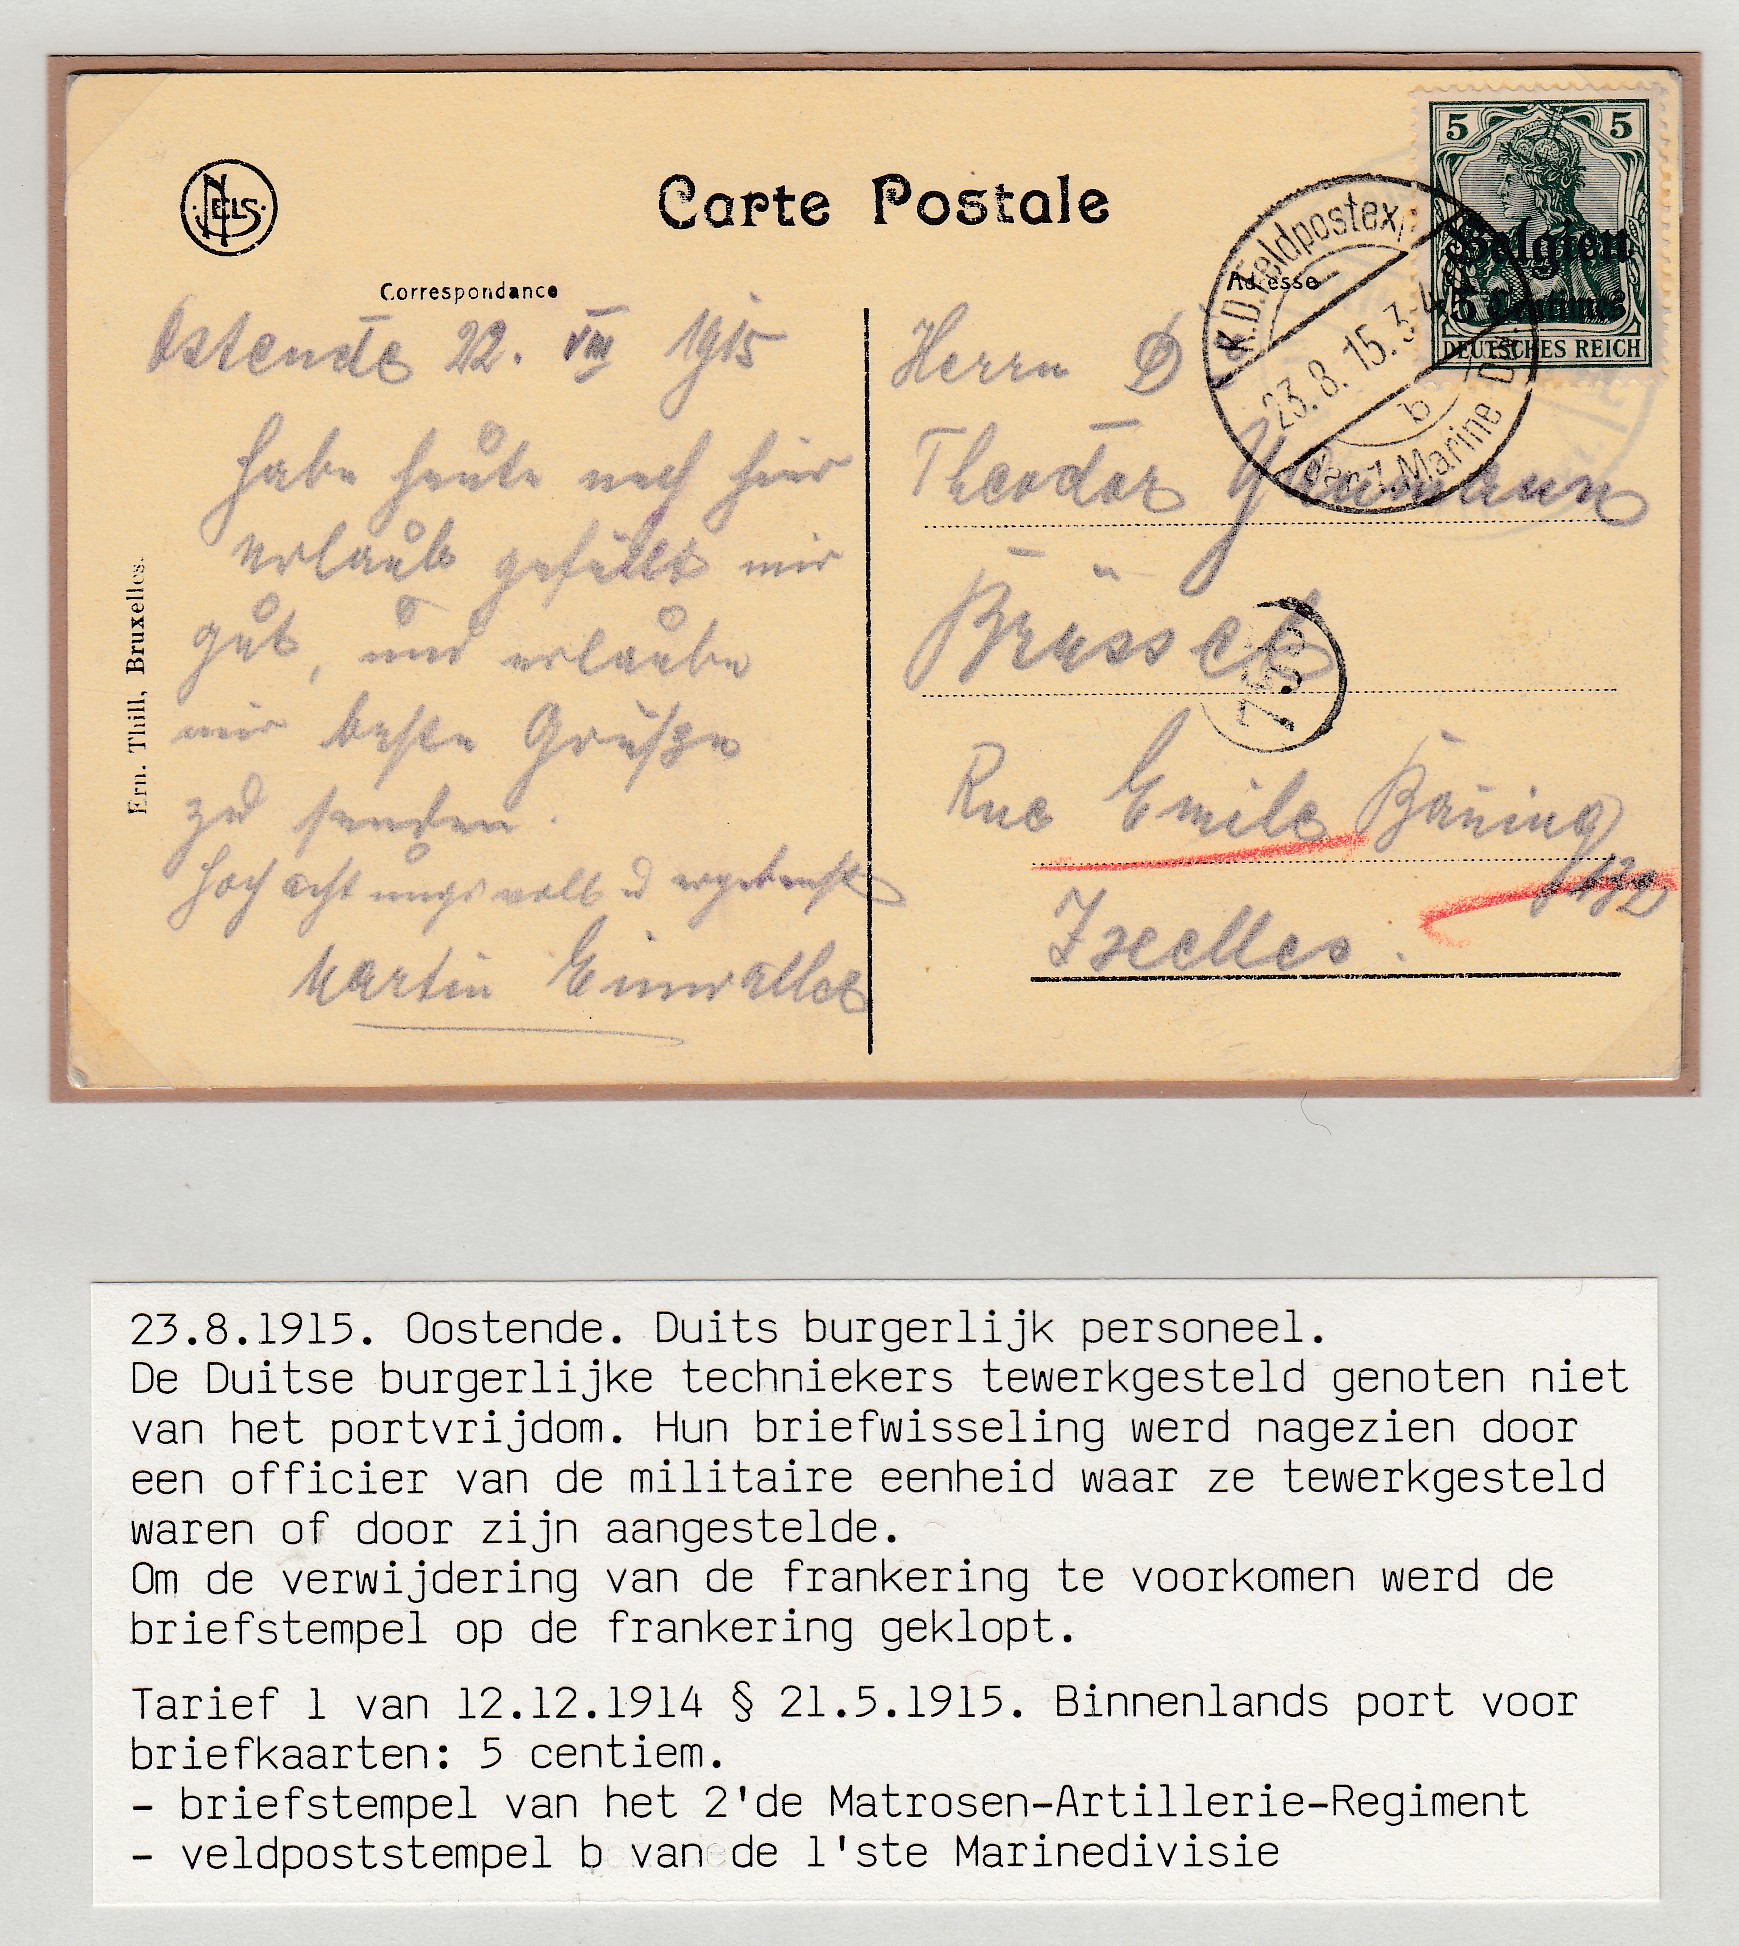 NELS
Carte Postale
Correspondance
Adresse
Ern. Thill, Bruxelles.
5 5
Belgien
5 Centimes
DEUTSCHES REICH
K.D. Feldpostexp.
23.8.15. 3-4
b
der 1. Marine Div.
Ostende 22. VIII 1915
Habe heute noch hier
erlaub gefällt mir
gut, und erlaube
mir beste Grüße
zu senden.
Hochachtungsvoll u ergebenst
Martin
Herrn D
Theodor
Brüssel
Rue Emile
132
Ixelles.
23.8.1915. Oostende. Duits burgerlijk personeel.
De Duitse burgerlijke techniekers tewerkgesteld genoten niet
van het portvrijdom. Hun briefwisseling werd nagezien door
een officier van de militaire eenheid waar ze tewerkgesteld
waren of door zijn aangestelde.
Om de verwijdering van de frankering te voorkomen werd de
briefstempel op de frankering geklopt.
Tarief 1 van 12.12.1914 § 21.5.1915. Binnenlands port voor
briefkaarten: 5 centiem.
- briefstempel van het 2'de Matrosen-Artillerie-Regiment
- veldpoststempel b van de 1'ste Marinedivisie